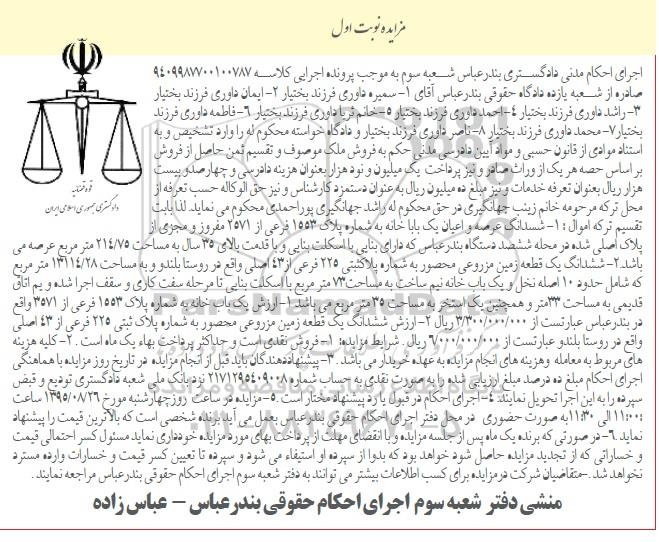 مزایده نوبت اول
اجرای احکام مدنی دادگستری بندرعباس شعبه سوم به موجب پرونده اجرایی کلاسه ۹۴۰۹۹۸۷۷۰۰۱۰۰۷۸۷
صادره از شعبه یازده دادگاه حقوقی بندرعباس آقای ۱- سمیره داوری فرزند بختیار ۲- ایمان داوری فرزند بختیار
۳- راشد داوری فرزند بختیار ۴- احمد داوری فرزند بختیار ۵- خانم ثریا داوری فرزند بختیار ۶- فاطمه داوری فرزند
بختیار۷- محمد داوری فرزند بختیار ۸- ناصر داوری فرزند بختیار و دادگاه خواسته محکوم له را وارد تشخیص و به
استناد موادی از قانون حسبی و مواد آیین دادرسی مدنی حکم به فروش ملک موصوف و تقسیم ثمن حاصل از فروش
بر اساس حصه هر یک از وراث صادر و نیز پرداخت یک میلیون و نود هزار بعنوان هزینه دادرسی و چهارصد و بیست
هزار ریال بعنوان تعرفه خدمات و نیز مبلغ ده میلیون ریال به عنوان دستمزد کارشناس و نیز حق الوکاله حسب تعرفه از
محل ترکه مرحومه خانم زینب جهانگیری در حق محکوم له راشد جهانگیری پوراحمدی محکوم می نماید. لذا بابت
تقسیم ترکه اموال : ۱- ششدانگ عرصه و اعیان یک بابا خانه به شماره پلاک ۱۵۵۳ فرعی از ۲۵۷۱ مفروز و مجزی از
پلاک اصلی شده در محله ششصد دستگاه بندرعباس که دارای بنایی با اسکلت بنایی و با قدمت بالای ۳۵ سال به مساحت ۲۱۴/۷۵ متر مربع عرصه می
باشد.۲- ششدانگ یک قطعه زمین مزروعی محصور به شماره پلاکثبتی ۲۲۵ فرعی از۴۳ اصلی واقع در روستا بلندو و به مساحت ۱۳۱۱۴/۲۸ متر مربع
که شامل حدود ۱۰ اصله نخل و یک باب خانه نیم ساخت به مساحت۷۳ متر مربع با اسکلت بنایی تا مرحله سفت کاری و سقف اجرا شده و یم اتاق
قدیمی به مساحت ۳۳متر و همچنین یک استخر به مساحت ۳۵متر مربع می باشد. ۱- ارزش یک باب خانه به شماره پلاک ۱۵۵۳ فرعی از ۳۵۷۱ واقع
در بندرعباس عبارتست از ۳/۳۰۰/۰۰۰/۰۰۰ ریال ۲- ارزش ششدانگ یک قطعه زمین مزروعی محصور به شماره پلاک ثبتی ۲۲۵ فرعی از ۴۳ اصلی
واقع در روستا بلندو عبارتست از ۶/۰۰۰/۰۰۰/۰۰۰ ریال . شرایط مزایده: ۱- فروش نقدی است و حداکثر پرداخت بهاء یک ماه است . ۲- کلیه هزینه
های مربوط به معامله و هزینه های انجام مزایده به عهده خریدار می باشد . ۳- پیشنهاددهندگان باید قبل از انجام مزایده در تاریخ روز مزایده با هماهنگی
اجرای احکام مبلغ ده درصد مبلغ ارزیابی شده را به صورت نقدی به حساب شماره ۲۱۷۱۲۹۵۴۰۹۰۰۸ نزد بانک ملی شعبه دادگستری تودیع و قبض
سپرده را به این اجرا تحویل نمایند ۴- اجرای احکام در قبول یا رد پیشنهاد مختار است . ۵- مزایده در ساعت روزچهارشنبه مورخ ۱۳۹۵/۰۸/۲۶ ساعت
۱۱:۰۰ الی ۱۱:۳۰ به صورت حضوری در محل دفتر اجرای احکام حقوقی بندرعباس بعمل می آید.برنده شخصی است که بالاترین قیمت را پیشنهاد
نماید ۶- در صورتی که برنده یک ماه پس از جلسه مزایده و با انقضای مهلت از پرداخت بهای مورد مزایده خودداری نماید مسئول کسر احتمالی قیمت
و خساراتی که از تجدید مزایده حاصل شود خواهد بود که بدوا از سپرده او استیفاء می شود و سپرده تا تعیین کسر قیمت و خسارات وارده مسترد
نخواهد شد . -متقاضیان شرکت درمزایده برای کسب اطلاعات بیشتر می توانند به دفتر شعبه سوم اجرای احکام حقوقی بندرعباس مراجعه نمایند .
منشی دفتر شعبه سوم اجرای احکام حقوقی بندرعباس – عباس زاده
قوه قضائیه
دادگستری جمهوری اسلامی ایران